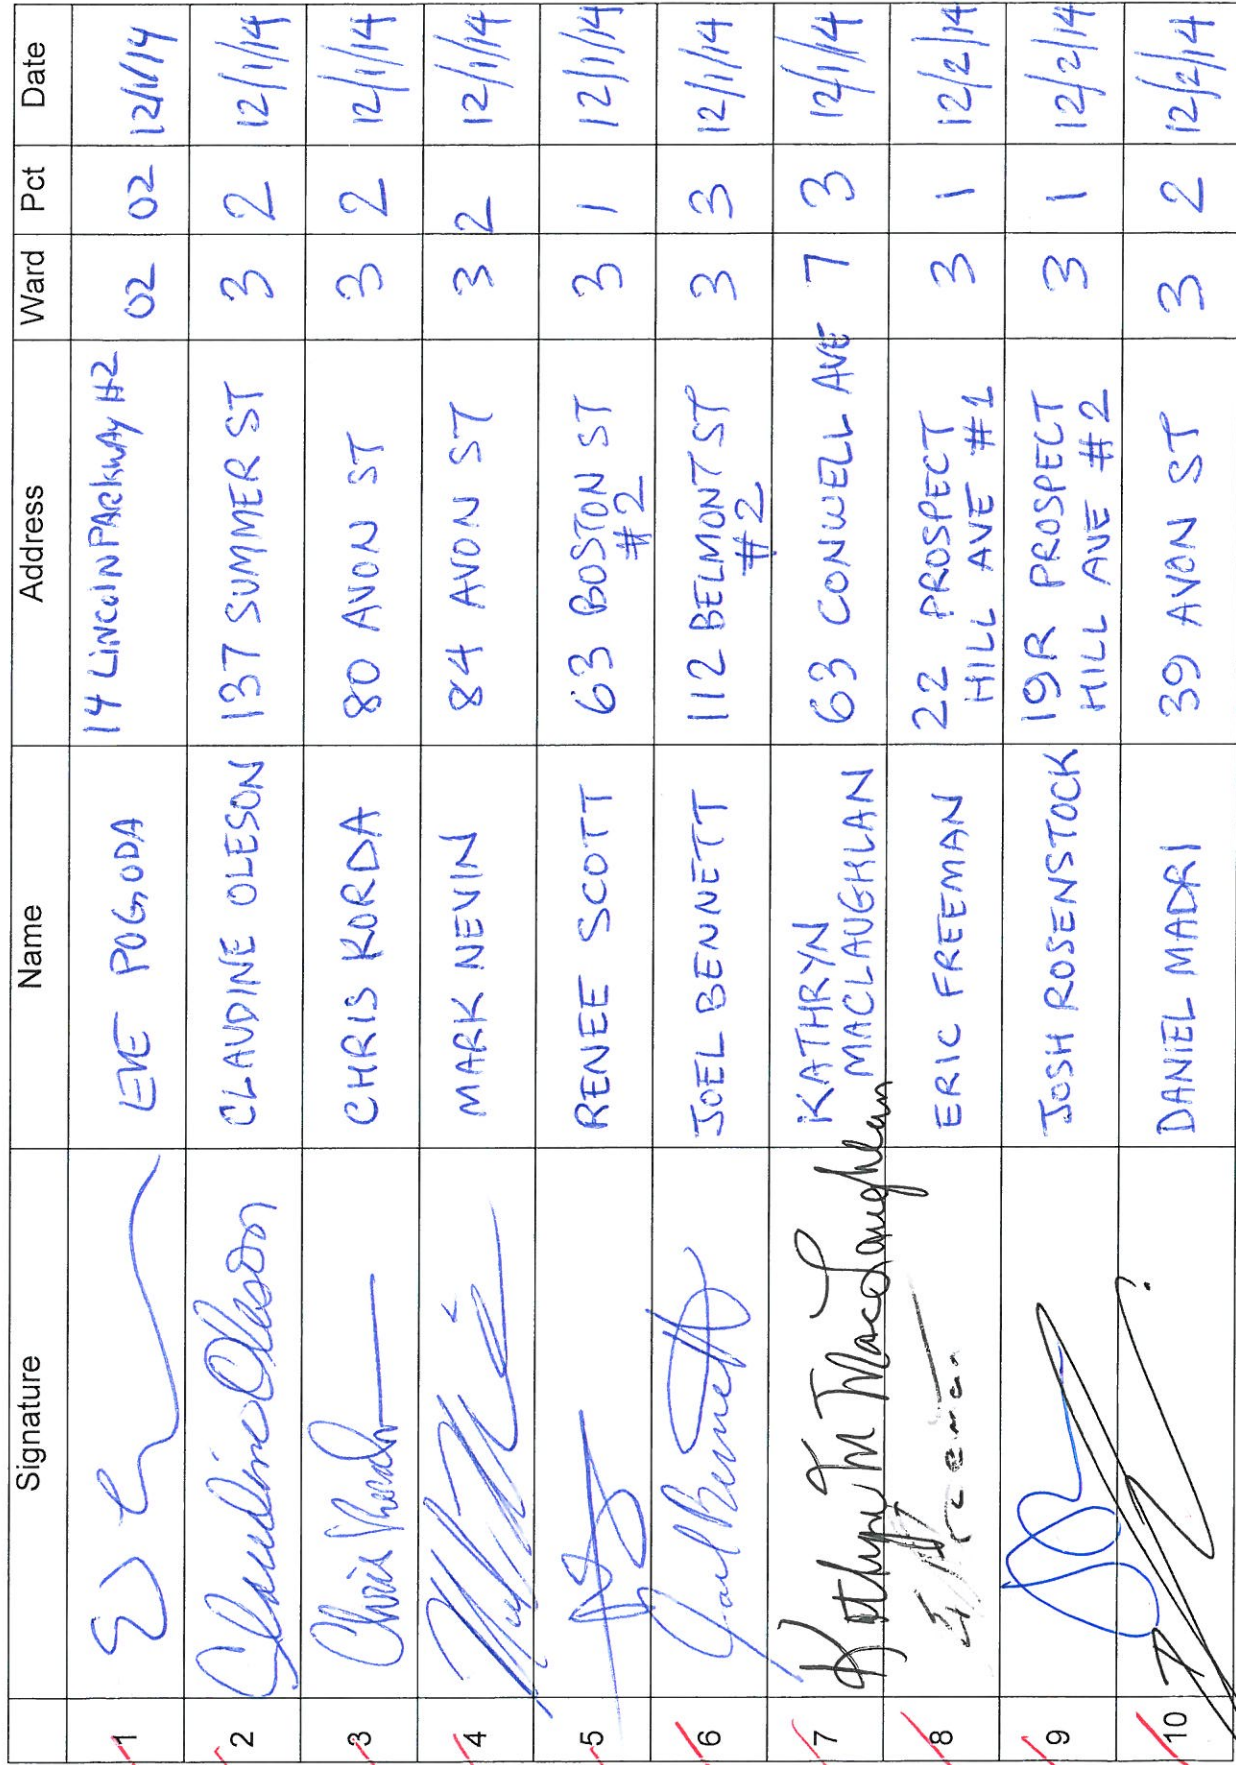 Signature Name Address Ward Pct Date
1 EVE POGODA 14 LINCOLN PARKWAY #2 02 02 12/1/14
2 Claudine Oleson CLAUDINE OLESON 137 SUMMER ST 3 2 12/1/14
3 CHRIS KORDA 80 AVON ST 3 2 12/1/14
4 MARK NEVIN 84 AVON ST 3 2 12/1/14
5 RENEE SCOTT 63 BOSTON ST 3 1 12/1/14
#2
6 Joel Bennett JOEL BENNETT 112 BELMONT ST 3 3 12/1/14
#2
7 Kathryn M MacLaughlan KATHRYN 63 CONWELL AVE 7 3 12/1/14
MACLAUGHLAN
8 ERIC FREEMAN 22 PROSPECT 3 1 12/2/14
Freeman HILL AVE #1
9 JOSH ROSENSTOCK 19R PROSPECT 3 1 12/2/14
HILL AVE #2
10 DANIEL MADRI 39 AVON ST 3 2 12/2/14